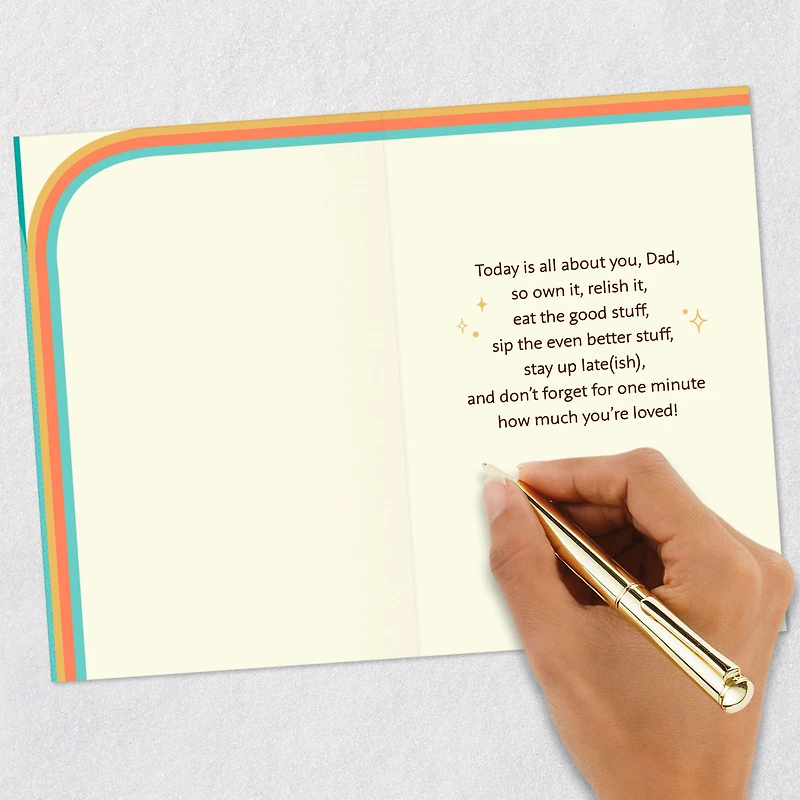 Today is all about you, Dad,
so own it, relish it,
eat the good stuff,
sip the even better stuff,
stay up late(ish),
and don't forget for one minute
how much you're loved!